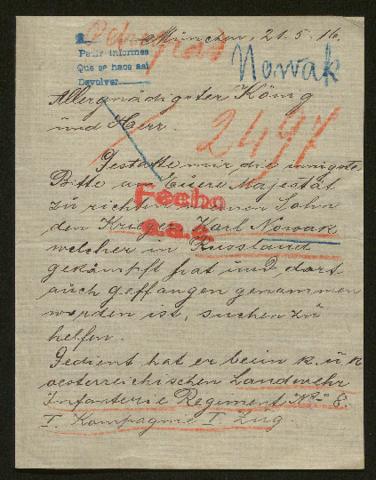 München, 21. 5. 16.
Petrograd
Pedir informes
Que se haga así
Devolver
Nowak
Allergnädigster König
und Herr.
2497
Gestatte mir die innigste
Bitte an Euere Majestät
zu richten meinen Sohn
Fecho
den Krieger Karl Nowak
welcher in Russland
gekämpft hat und dort
auch geffangen genommen
worden ist, suchen zu
helfen.
Gedient hat er beim k. u. k
oesterreichischen Landwehr
Infanterie Regiment No 8.
I. Kompagnie I. Zug.